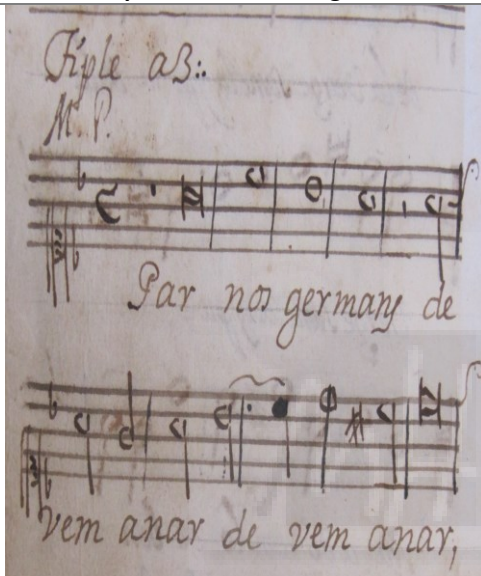 Tiple a3:.
M. P.
Par nos germans de
vem anar de vem anar,